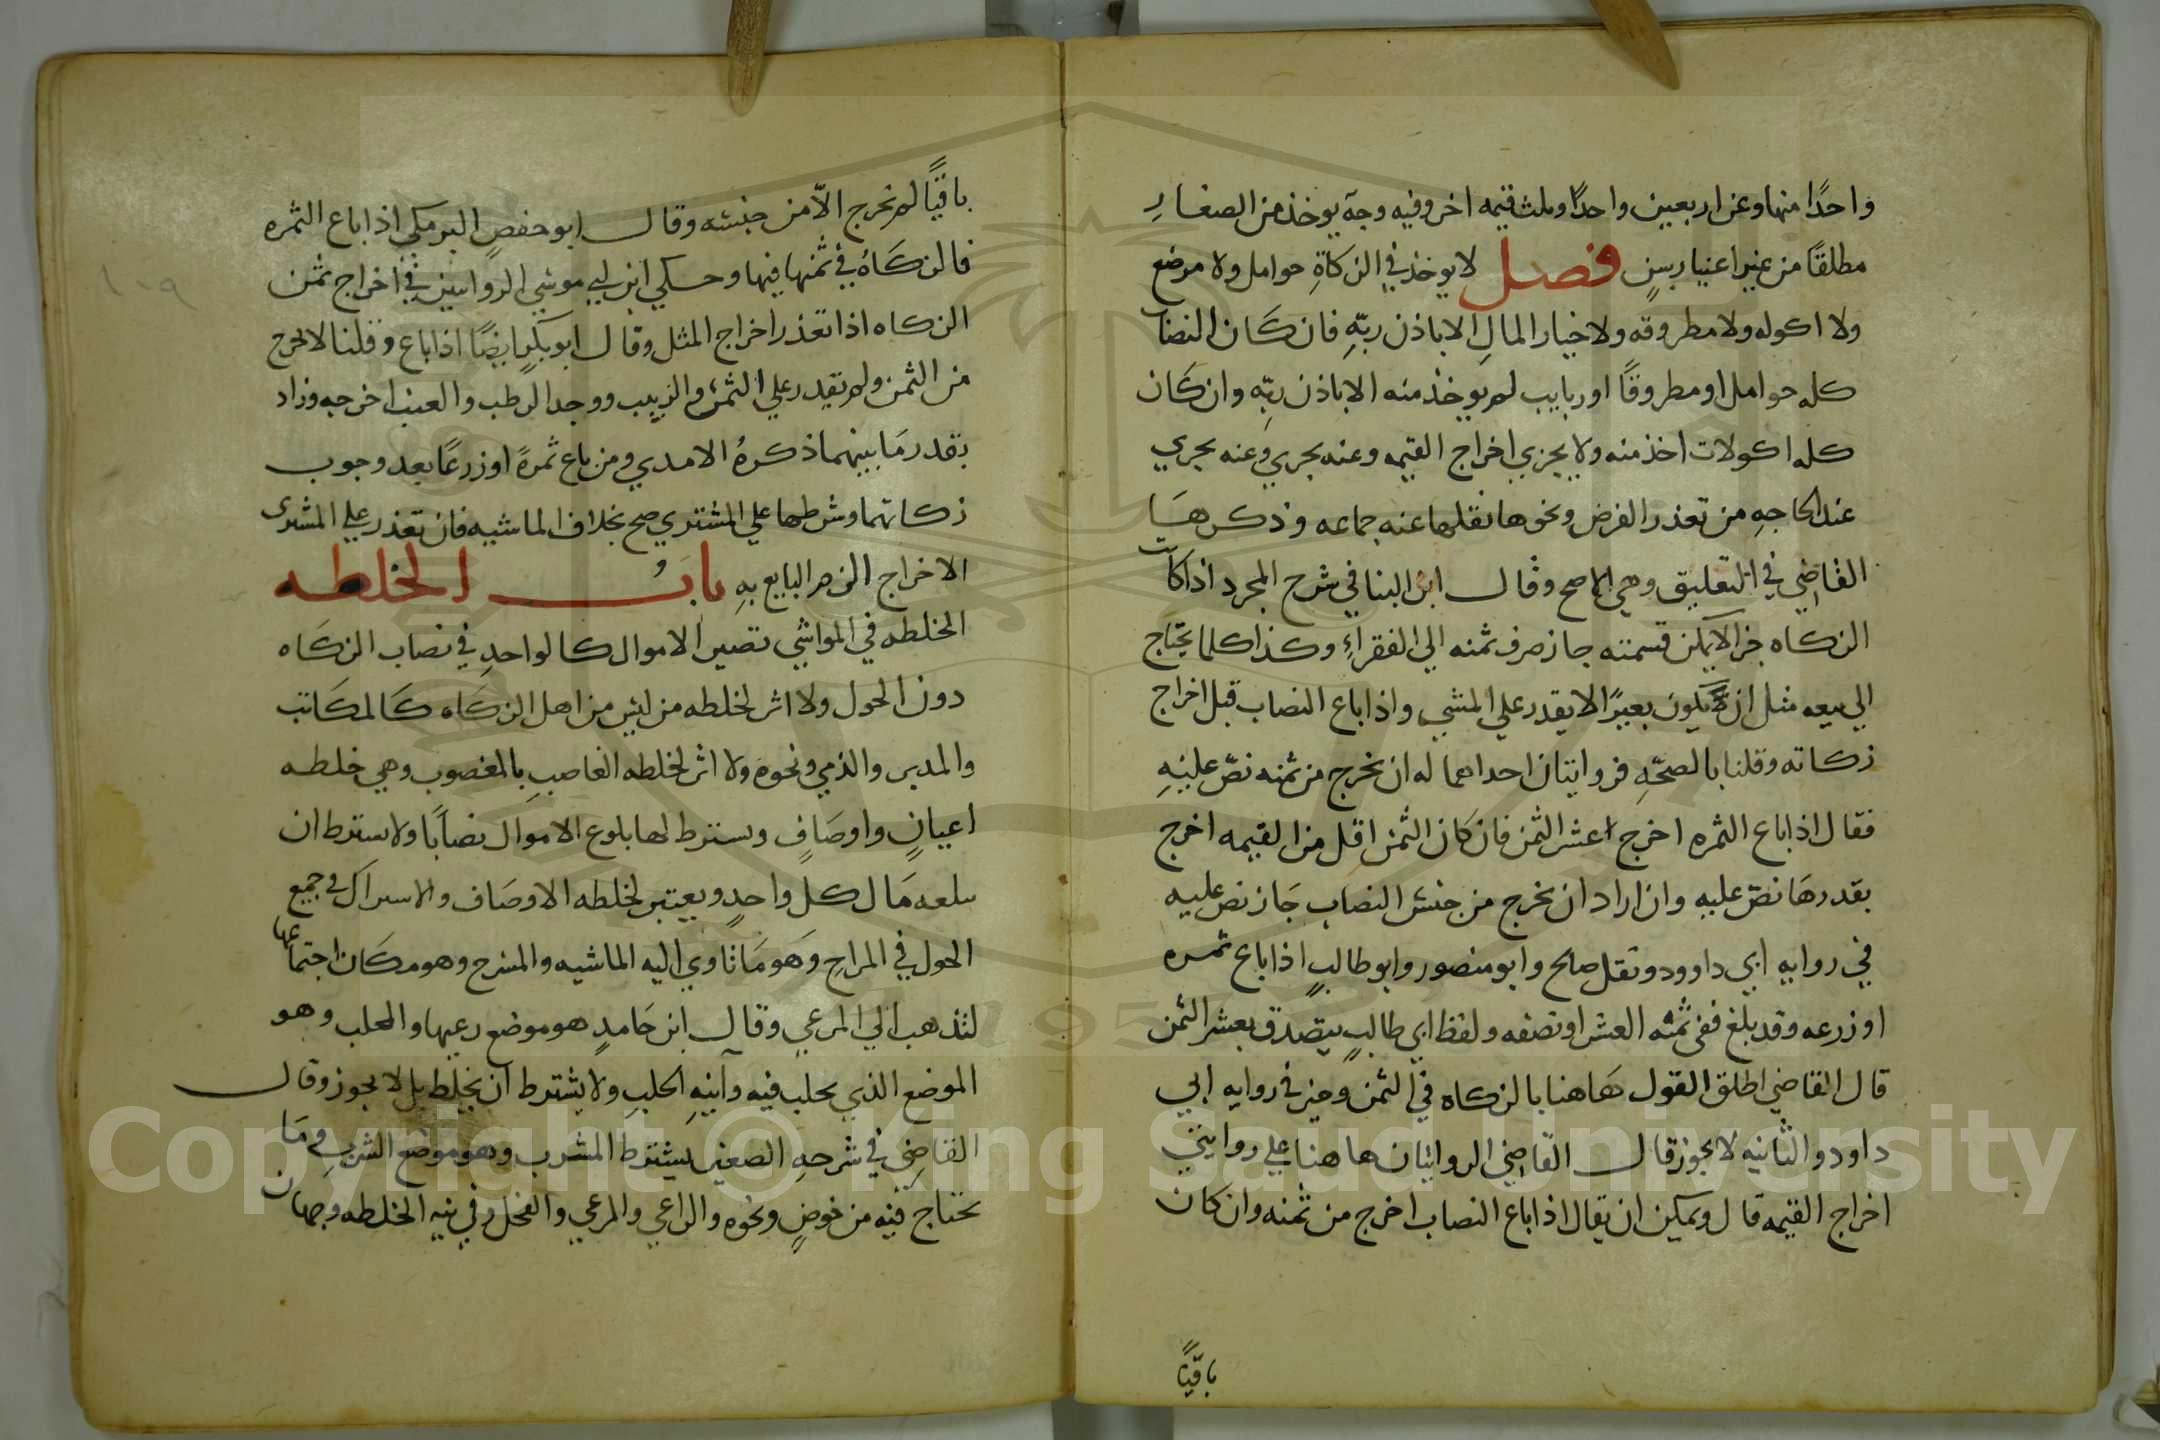 واحدًا منها وعن اربعين واحدًا وثلث قيمه اخر وفيه وجه يوخذ من الصغار
مطلقًا من غير اعتبار سن فصل لا يوخذ في الزكاة حوامل ولا مرضع
ولا اكوله ولا مطروقه ولا خيار المال الا باذن ربه فان كان النصاب
كله حوامل او مطروقًا او ربايب لم يوخذ منه الا باذن ربه وان كان
كله اكولات اخذ منه ولا يجزي اخراج القيمه وعنه يجزي وعنه يجزي
عند الحاجه من تعذر الفرض ونحوها نقلها عنه جماعه وذكرها
القاضي في التعليق وهي الاصح وقال ابن البنا في شرح المجرد اذا كانت
الزكاه جزا لا يمكن قسمته جاز صرف ثمنه الي الفقراء وكذا كلما يحتاج
الي بيعه مثل ان يكون بعيرًا لا يقدر علي المشي واذا باع النصاب قبل اخراج
زكاته وقلنا بالصحه فروايتان احداهما له ان يخرج من ثمنه نص عليه
فقال اذا باع الثمره اخرج عشر الثمن فان كان الثمن اقل من القيمه اخرج
بقدرها نص عليه وان اراد ان يخرج من جنس النصاب جاز نص عليه
في روايه ابي داوود ونقل صالح وابو منصور وابو طالب اذا باع ثمره
او زرعه وقد بلغ ففي ثمنه العشر او نصفه ولفظ ابي طالب يتصدق بعشر الثمن
قال القاضي اطلق القول هاهنا بالزكاه في الثمن وخير في روايه ابي
داود والثانيه لا يجوز قال القاضي الروايتان هاهنا علي روايتي
اخراج القيمه قال ويمكن ان يقال اذا باع النصاب اخرج من ثمنه وان كان
باقيًا
باقيًا لم يخرج الا من جنسه وقال ابو حفص البرمكي اذا باع الثمره
فالزكاه في ثمنها فيها وحكي ابن ابي موسي الروايتين في اخراج ثمن
الزكاه اذا تعذر اخراج المثل وقال ابو بكر ايضًا اذا باع وقلنا لا يخرج
من الثمن ولم يقدر علي التمر والزبيب ووجد الرطب والعنب اخرجه وزاد
بقدر ما بينهما ذكره الامدي ومن باع ثمرةً او زرعًا بعد وجوب
زكاتهما وشرطها علي المشتري صح بخلاف الماشيه فان تعذر علي المشتري
الاخراج الزم البايع به باب الخلطه
الخلطه في المواشي تصير الاموال كالواحد في نصاب الزكاه
دون الحول ولا اثر لخلطه من ليس من اهل الزكاه كالمكاتب
والمدبر والذمي ونحوه ولا اثر لخلطه الغاصب بالمغصوب وهي خلطه
اعيان واوصاف ويشترط لها بلوغ الاموال نصابًا ولا يشترط ان
يبلغه مال كل واحد ويعتبر لخلطه الاوصاف والاشتراك في جميع
الحول في المراح وهو ما تاوي اليه الماشيه والمسرح وهو مكان اجتماعها
لتذهب الي المرعي وقال ابن حامد هو موضع رعيها والمحلب وهو
الموضع الذي يحلب فيه وآنيه الحلب ولا يشترط ان يخلط بل لا يجوز وقال
القاضي في شرحه الصغير يشترط المشرب وهو موضع الشرب في ما
تحتاج فيه من حوض ونحوه والراعي والمرعي والفحل وفي نيه الخلطه وجهان
١٠٩
Copyright © King Saud University
1957